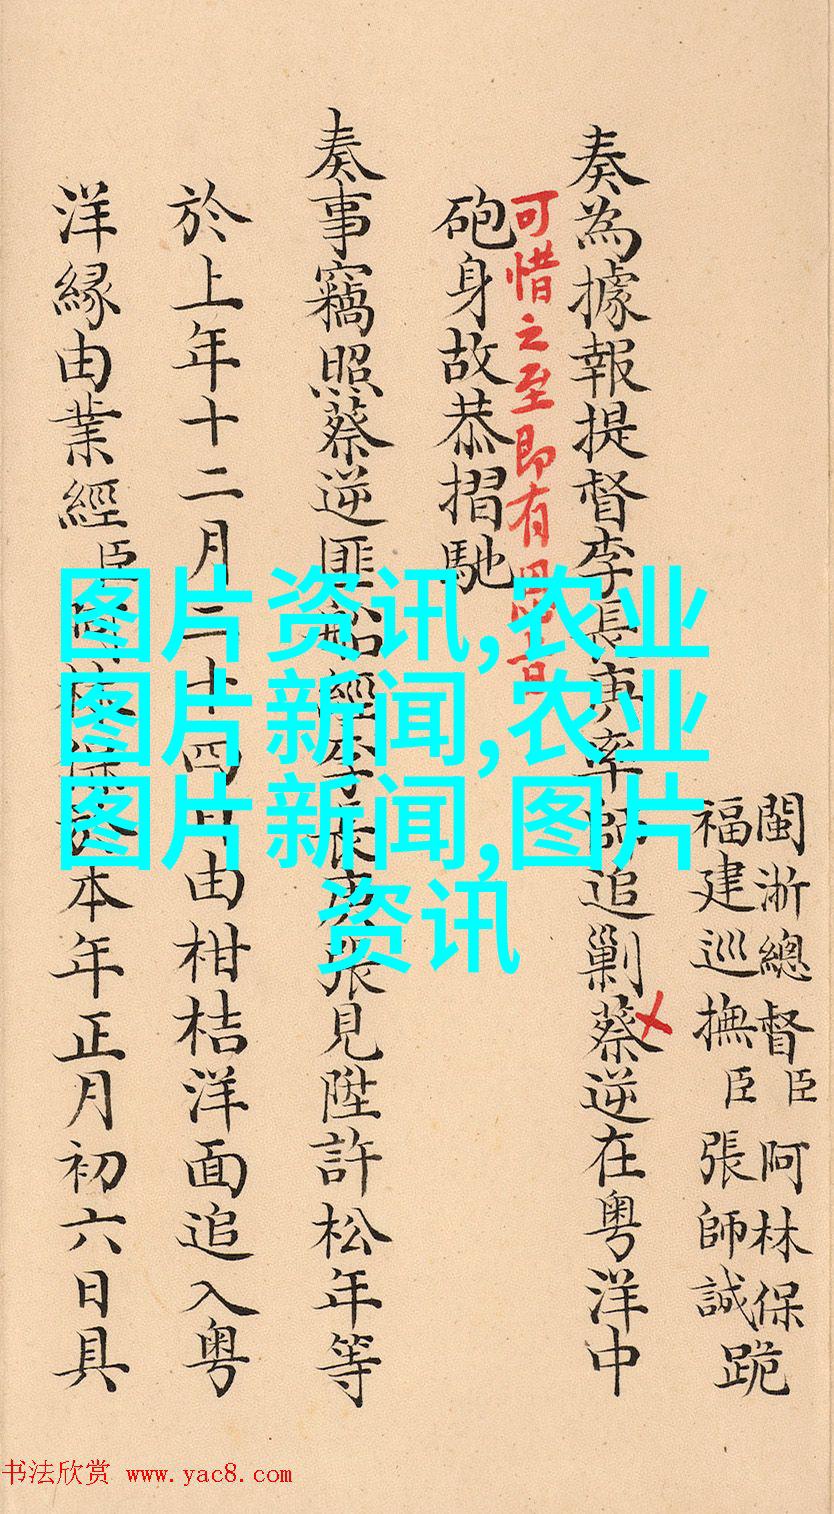 閩浙總督臣阿林保
福建巡撫臣張師誠
跪
奏為據報提督李長庚率師追剿蔡逆在粤洋中
可惜之至即有
砲身故恭摺馳
奏事竊照蔡逆匪船經李長庚張見陞許松年等
於上年十二月二十四日由柑桔洋面追入粤
洋緣由業經臣本年正月初六日具
图片资讯,农业
图片新闻,农业
图片新闻,图片
资讯
书法欣赏 www.yac8.com